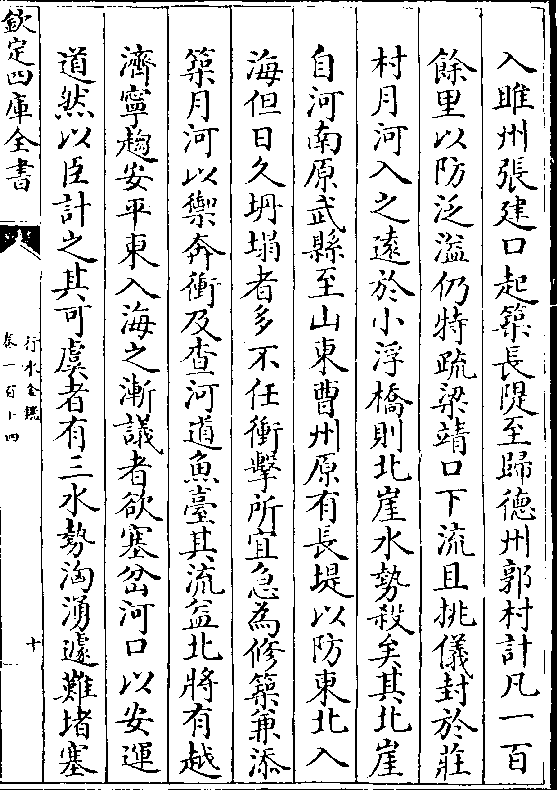 入雎州張建口起築長隄至歸德州郭村計凡一百
餘里以防泛溢仍特疏梁靖口下流且挑儀封於莊
村月河入之逺於小浮橋則北崖水勢殺矣其北崖
自河南原武縣至山東曹州原有長堤以防東北入
海但日久坍塌者多不任衝擊所宜急為修築兼添
築月河以禦奔衝及查河道魚臺其流益北將有越
濟寧趨安平東入海之漸議者欲塞岔河口以安運
道然以臣計之其可虞者有三水勢洶湧遽難堵塞
欽定四庫全書
行水金鑑
卷一百十四
十